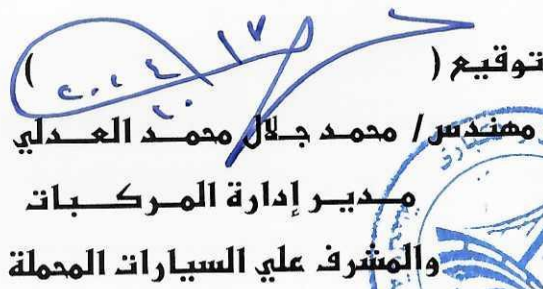 توقيع ( )
مهندس / محمد جلال محمد العدلي
مدير إدارة المركبات
والمشرف علي السيارات المحملة